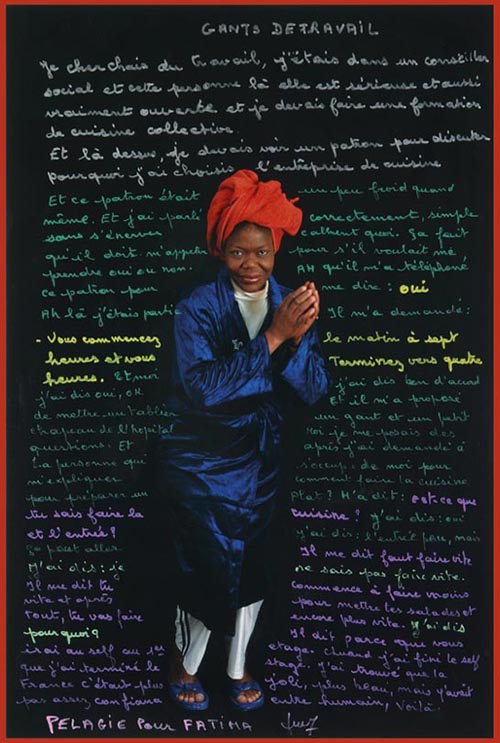 GANTS DE TRAVAIL
Je cherchais du travail, j'étais dans un conseiller
social et cette personne là elle est sérieuse et aussi
vraiment ouverte et je devais faire une formation
de cuisine collective.
Et là dessus, je devais voir un patron pour discuter
pourquoi j'ai choisis l'entreprise de cuisine
Et ce patron était un peu froid quand
même. Et j'ai parlé correctement, simple
sans s'énerver calment quoi. Ça fait
qu'il doit m'appeler pour s'il voulait me
prendre oui ou non. AH qu'il m'a téléphoné
ce patron pour me dire : oui
Ah là j'étais partie Il m'a demandé :
- Vous commencez le matin à sept
heures et vous Terminez vers quatre
heures. Et moi j'ai dis ben d'accord
j'ai dis oui, OK Et il m'a proposé
de mettre un tablier un gant et un petit
chapeau de l'hopital Moi je me posais des
questions. Et après j'ai demandé à
La personne qui s'occup. de moi pour
m'expliquer comment faire la cuisine
pour préparer un plat? M'a dit: est-ce que
tu sais faire la cuisine? J'ai dis: oui
et l'entrée? J'ai dis: l'entrée peu, mais
Ça peut aller. Il me dit faut faire vite
M'ai dis: je ne sais pas faire vite.
Il me dit tu commence à faire moins
vite et après pour mettre les salades et
tout, tu vas faire encore plus vite. J'ai dis
pourquoi? Il dit parce que vous
irai au self au 1er etage. Quand j'ai fini le self
que j'ai terminé le stage. J'ai trouvé que la
France c'était plus joli, plus beau, mais y'avait
pas assez confiance entre humain, Voilà.
PELAGIE Pour FATIMA